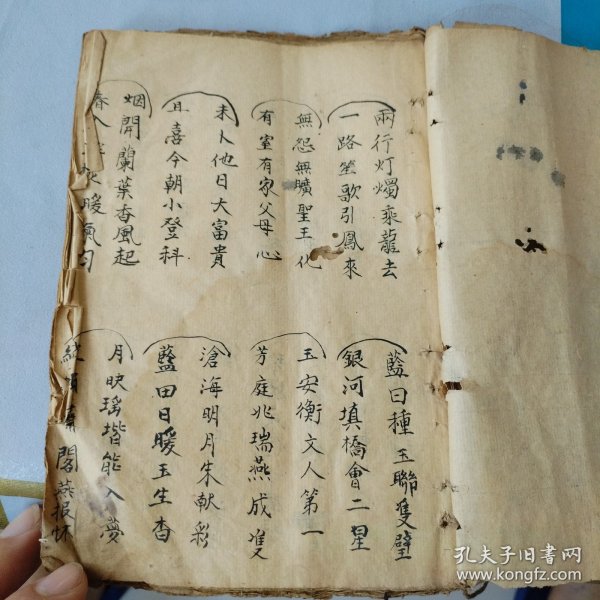 兩行灯燭乘龍去
一路笙歌引鳳來
無怨無曠聖王化
有室有家父母心
未卜他日大富貴
且喜今朝小登科
烟開蘭葉香風起
春入
暖氣匀
藍日種玉聯雙璧
銀河填橋會二星
玉安衡文人第一
芳庭兆瑞燕成雙
滄海明月朱献彩
藍田日暖玉生香
月映瑶堦能入夢
閣燕投怀
孔夫子旧书网
www.kongfz.com